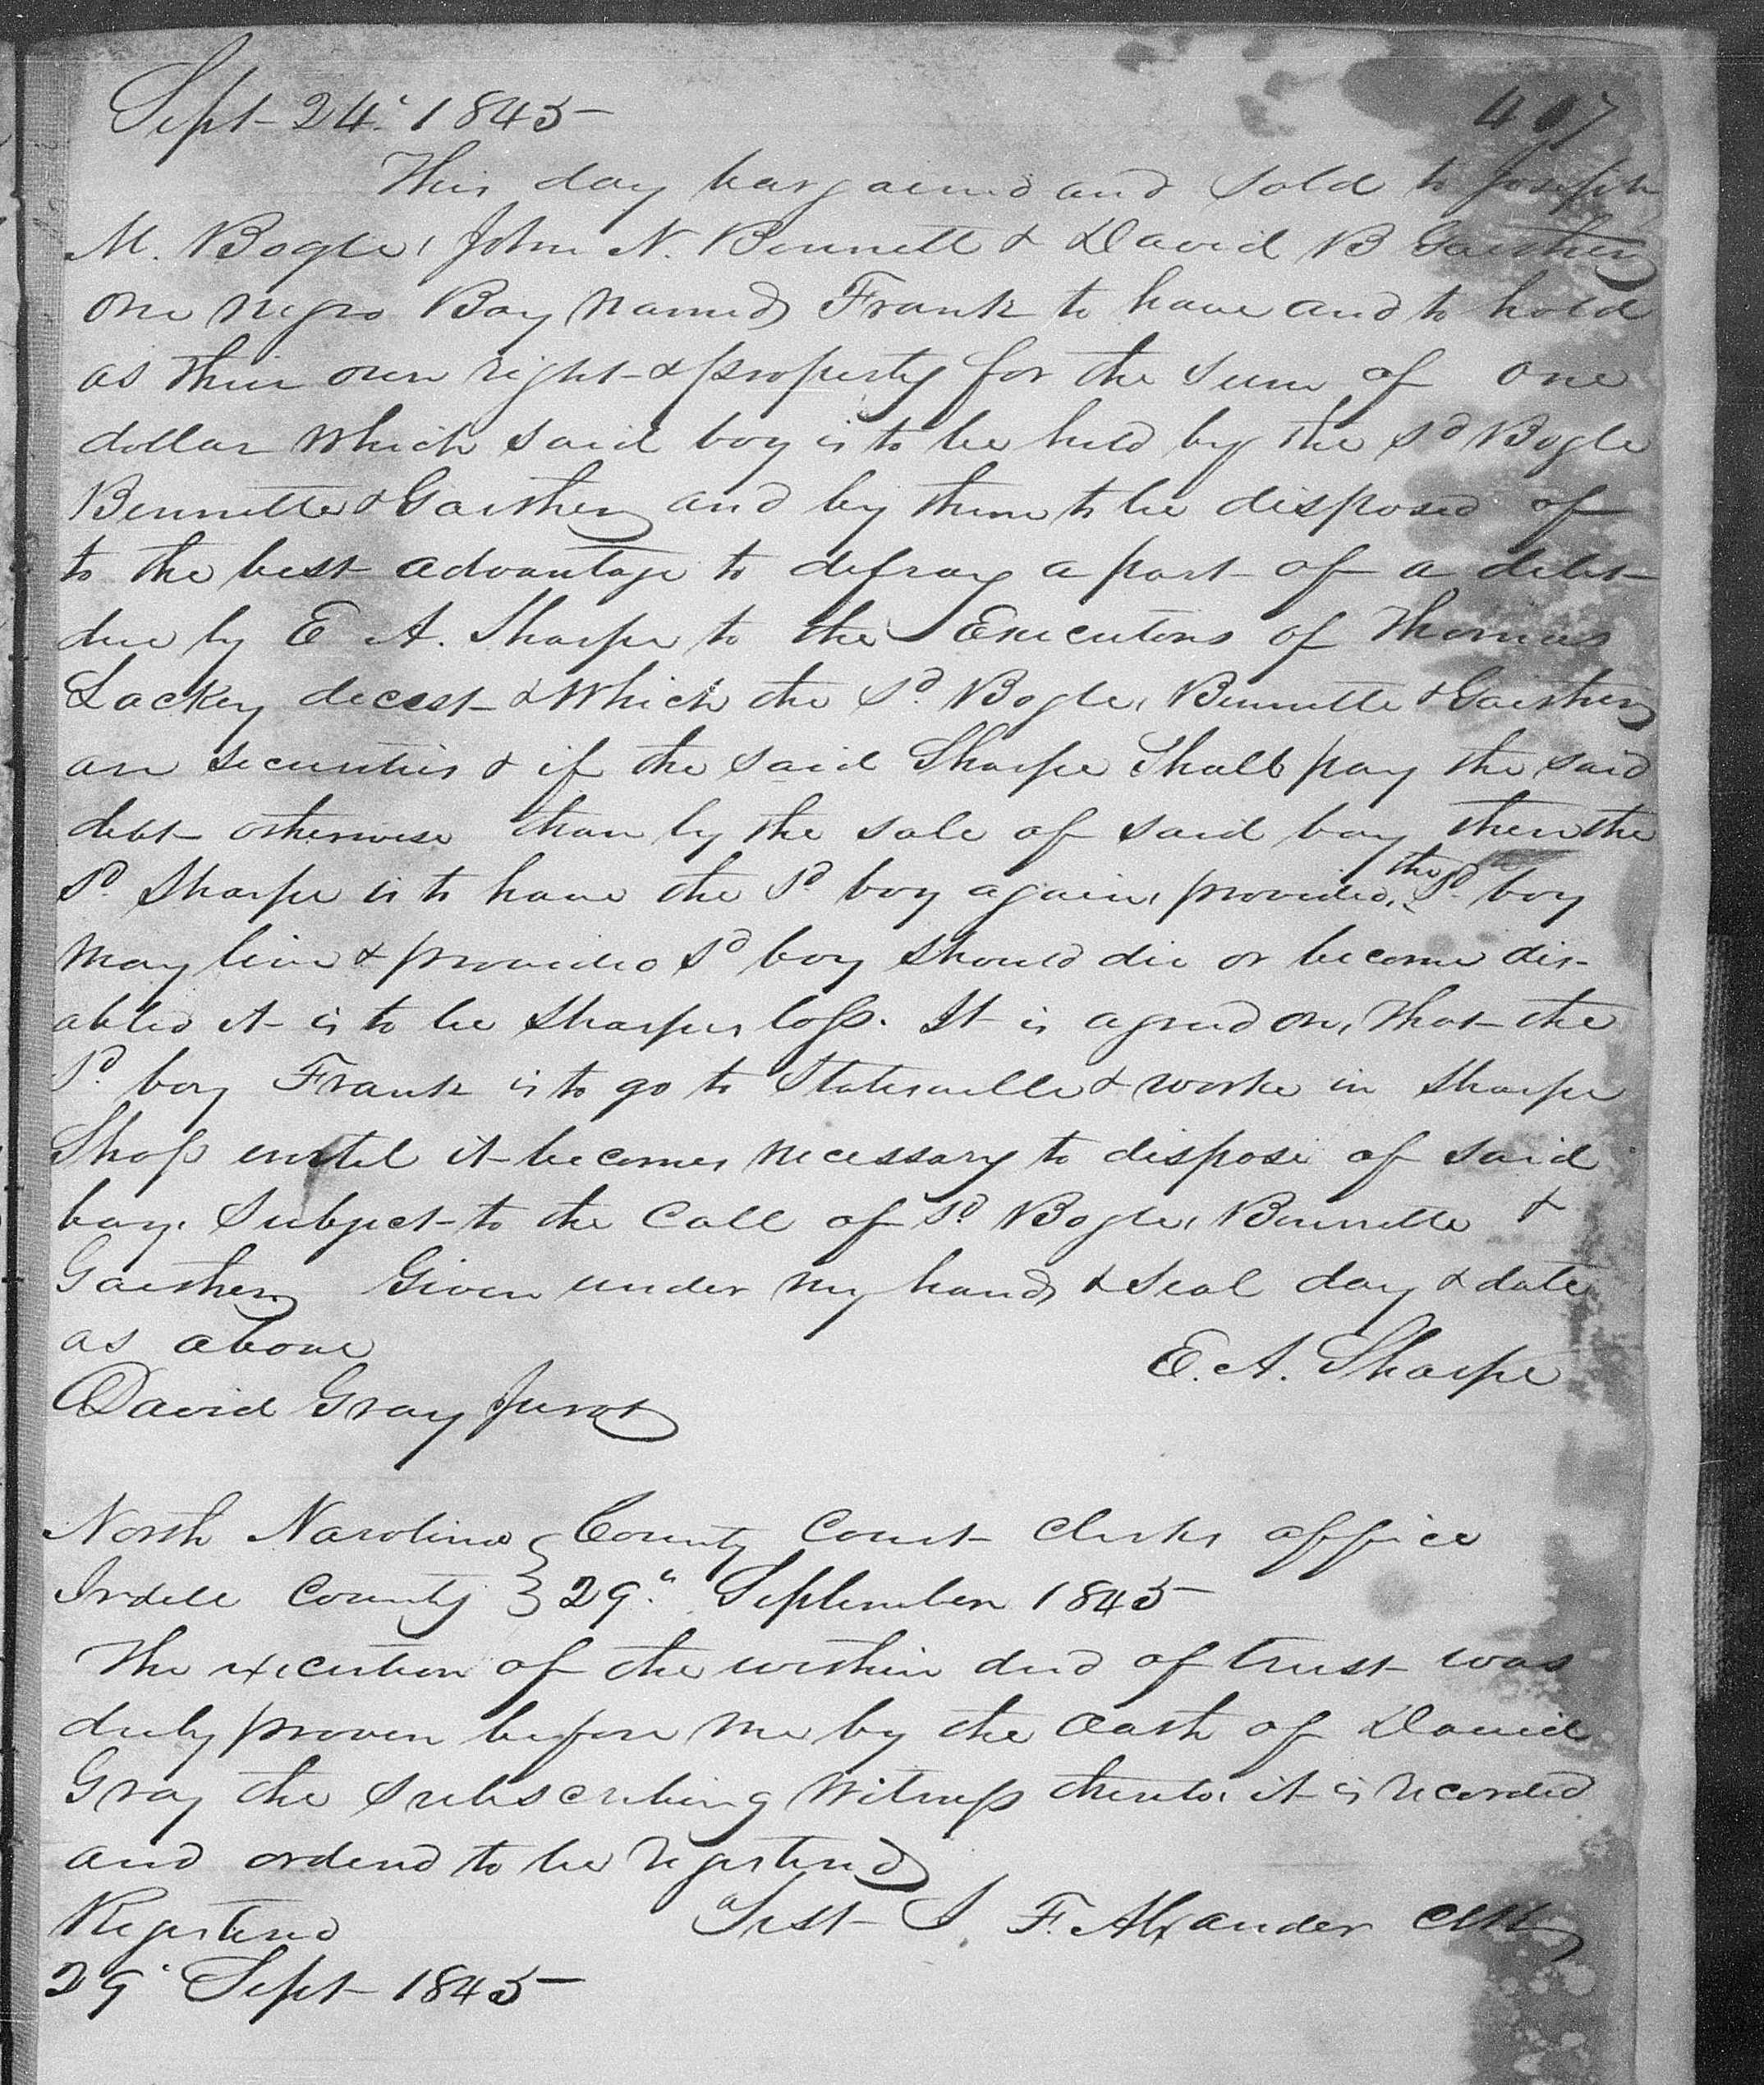 Sept 24th 1845
407
This day bargained and sold to Joseph
M. Bogle, John N. Bennett & David B Gaither
one negro Boy named Frank to have and to hold
as their own right & property for the sum of one
dollar which said boy is to be held by the sd Bogle
Bennette & Gaither and by them to be disposed of
to the best advantage to defray a part of a debt
due by E A. Sharpe to the Executors of Thomas
Lackey decest & which the sd Bogle, Bennette & Gaither
are securities & if the said Sharpe Shall pay the said
debt otherwise than by the sale of said boy then the
sd Sharpe is to have the sd boy again, provided, the sd boy
may live & provided sd boy should die or become dis-
abled it is to be Sharpes loss. It is agreed on, that the
sd boy Frank is to go to Statesville & worke in Sharpe
Shop untel it becomes necessary to dispose of said
boy. Subject to the Call of sd Bogle, Bennette &
Gaither Given under my hand & seal day & date
as above
E. A. Sharpe
David Gray Jurat
North Narolina } County Court Clerks office
Iredell County } 29th September 1845
The execution of the within deed of trust was
duly proven before me by the oath of David
Gray the subscribing witness thereto, it is recorded
and ordered to be registered
Registered
Test J F. Alexander Clk
29th Sept 1845